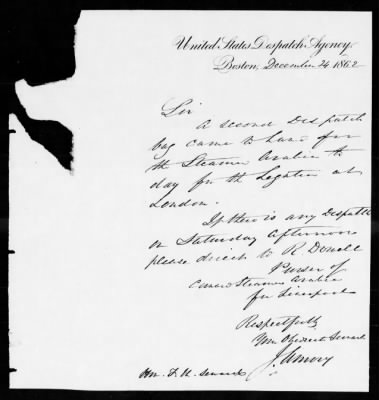 United States Despatch Agency,
Boston, December 24 1862
Sir
A second Despatch
bag came to hand for
the Steamer Arabia to
day for the Legation at
London.
If there is any Despatch
on Saturday afternoon
please direct to R Donell
Purser of
Cunard Steamer Arabia
for Liverpool
Respectfully
Your Obedient Servant
J. Amory
Hon. F. W. Seward